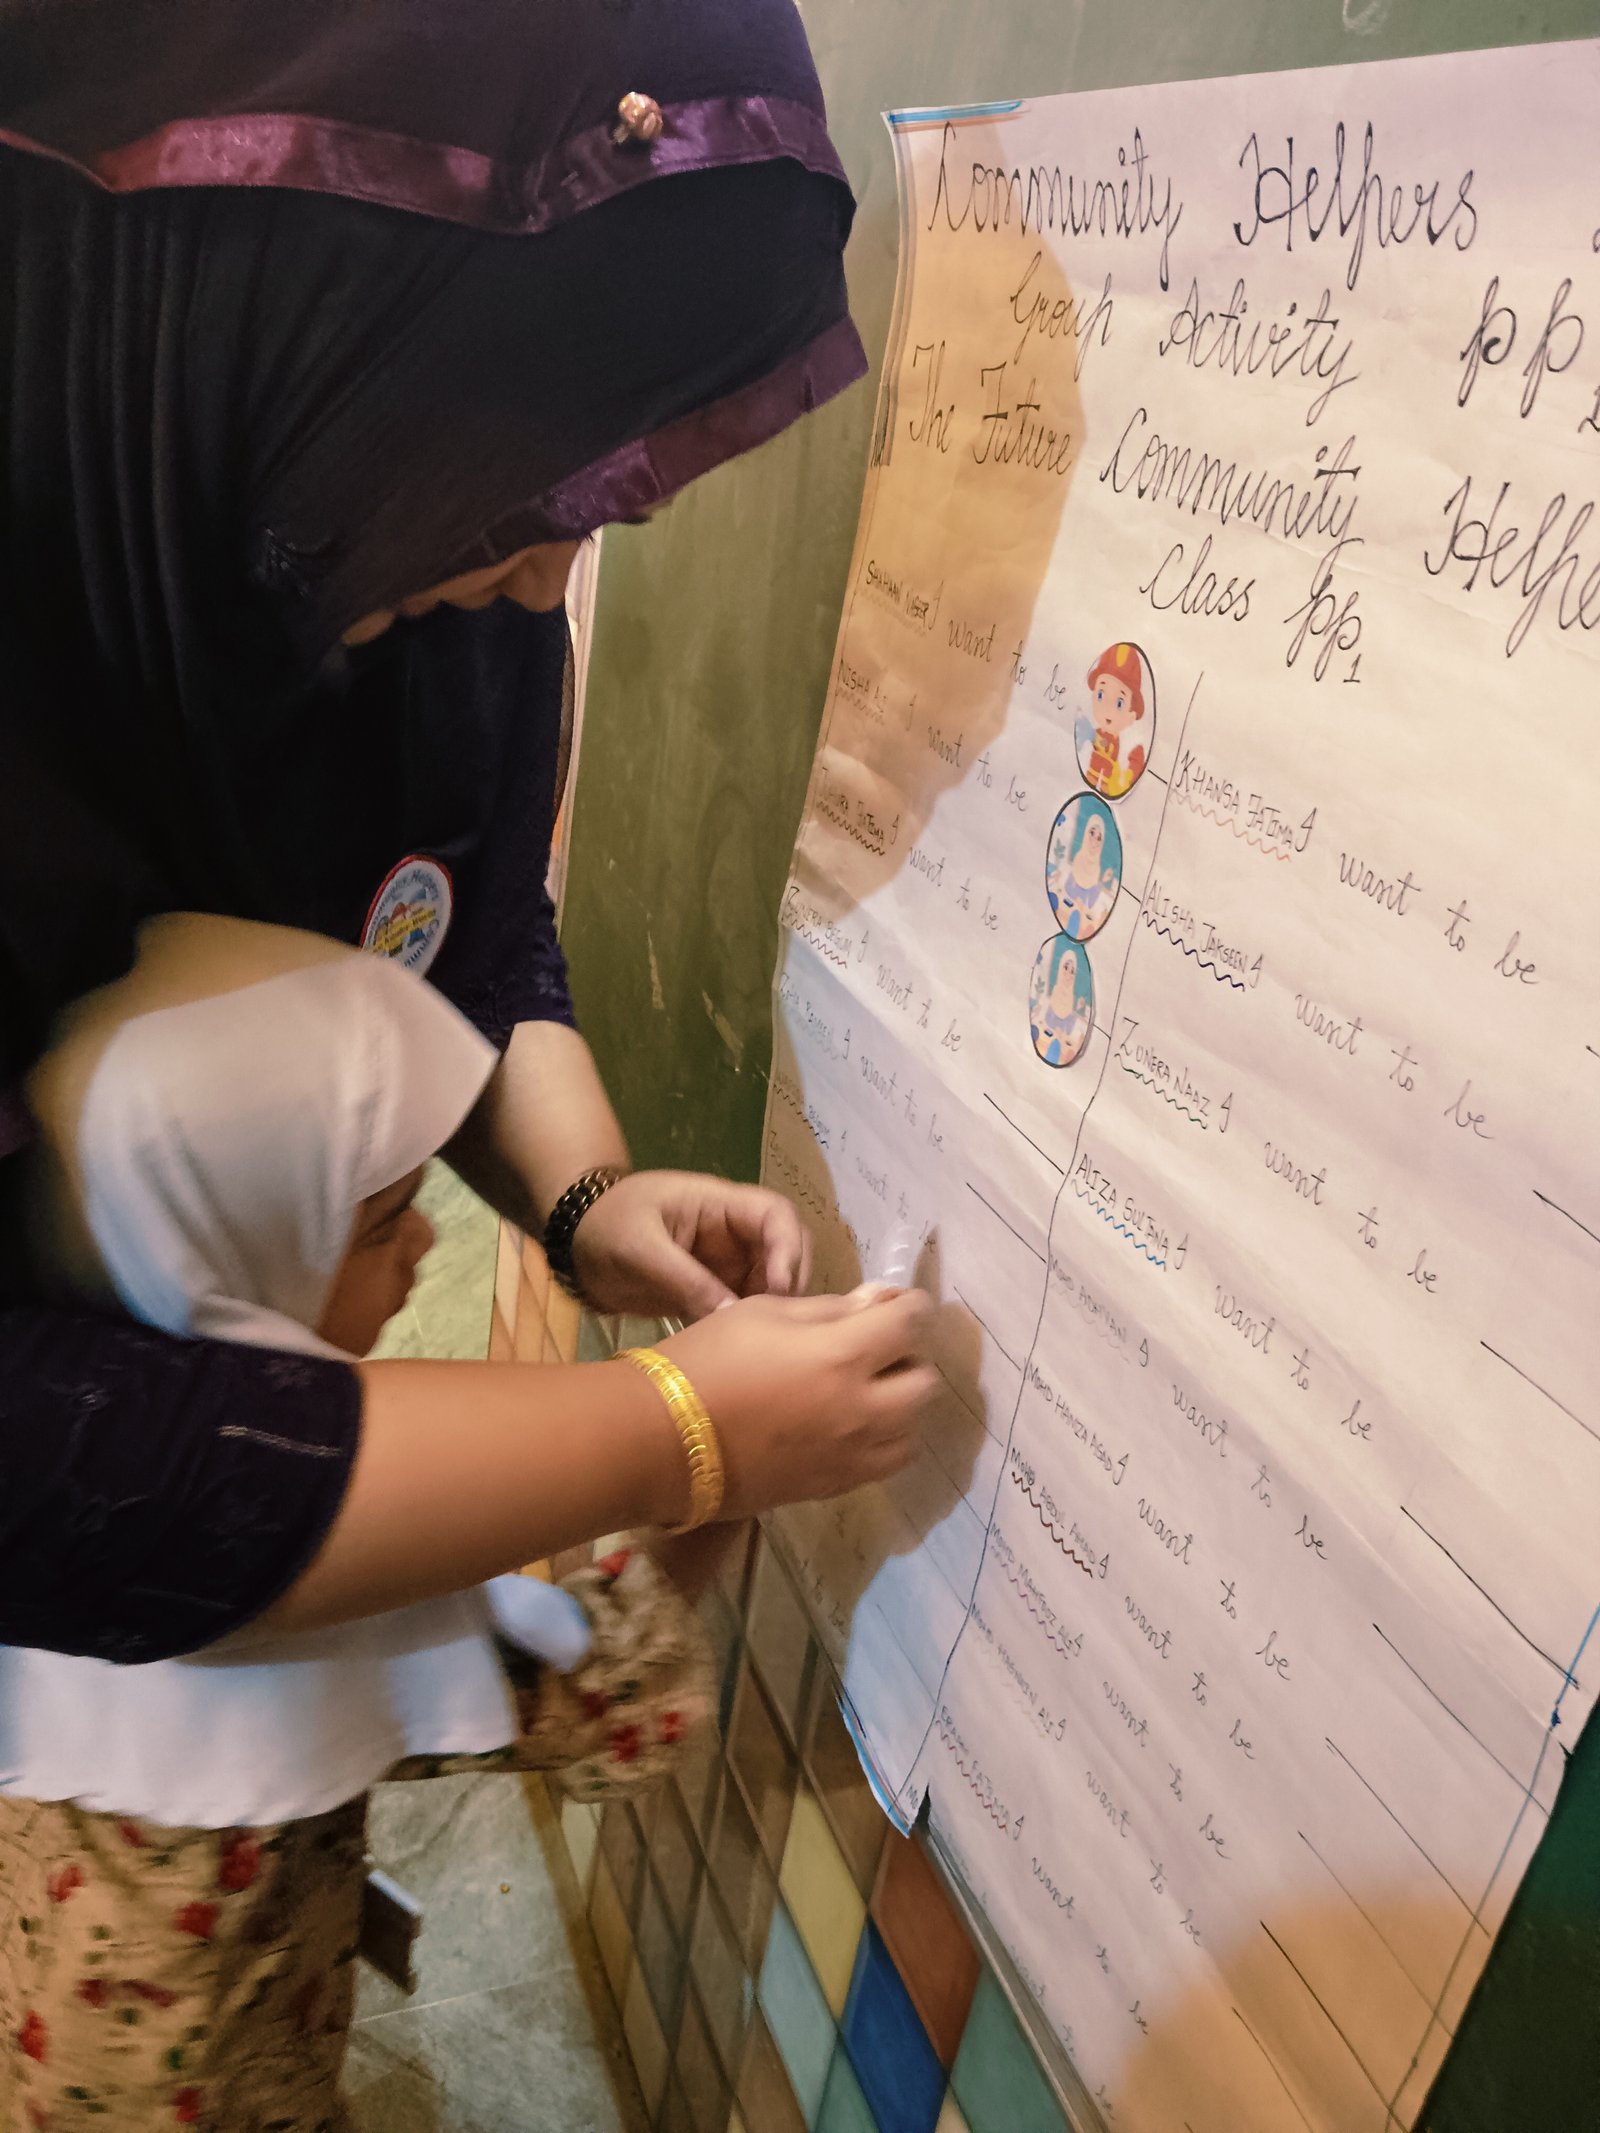 Community Helpers
Group Activity PP
The Future Community Helpe
Class PP1
SHAHAAN NASEER I want to be
NISHA I want to be
FATIMA I want to be
ZUNERA BEGUM I want to be
I want to be
BEGUM I want to be
I want
KHANSA FATIMA I want to be
ALISHA I want to be
ZUNERA NAAZ I want to be
ALIZA SULTANA I want to be
MOHD ADNAN I want to be
MOHD HAMZA ASAD I want to be
MOHD ABDUL AHAD I want to be
MOHD MAHFOOZ ALI I want to be
MOHD HASNAIN ALI I want to be
FATIMA I want to be